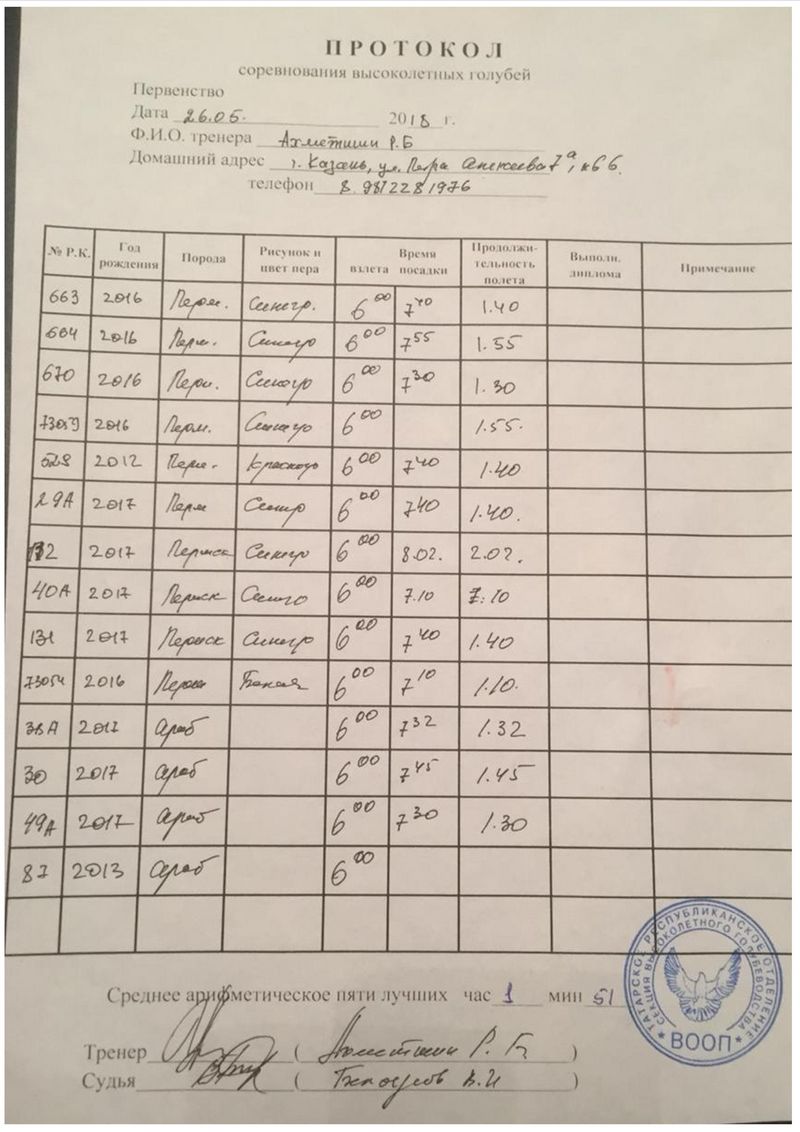 ПРОТОКОЛ
соревнования высоколетных голубей
Первенство
Дата 26.05. 2018 г.
Ф.И.О. тренера Ахметшин Р.Б
Домашний адрес г. Казань, ул. Петра Алексеева 7а,
телефон 8. 9872281976
№ Р.К. Год рождения Порода Рисунок и цвет пера Время взлета посадки Продолжи-тельность полета Выполн. диплома Примечание
663 2016 Перм. Синегр. 6 00 7 40 1.40
664 2016 Перм. Синегр 6 00 7 55 1.55
670 2016 Перм. Синегр 6 00 7 30 1.30
73059 2016 Перм. Синегр 6 00 1.55.
528 2012 Перм. 6 00 7 40 1.40
29А 2017 Перм Синегр 6 00 7 40 1.40.
2017 Пермск Синегр 6 00 8.02. 2.02.
40А 2017 Пермск Синег 6 00 7.10 1.10
131 2017 Пермск Синегр 6 00 7 40 1.40
73054 2016 Перм Белая 6 00 7 10 1.10.
38А 2017 Араб 6 00 7 32 1.32
30 2017 Араб 6 00 7 45 1.45
49А 2017 Араб 6 00 7 30 1.30
87 2013 Араб 6 00
Среднее арифметическое пяти лучших час 1 мин 51
Тренер ( Ахметшин Р. Б. )
Судья ( В.И )
ТАТАРСКОЕ РЕСПУБЛИКАНСКОЕ ОТДЕЛЕНИЕ
СЕКЦИЯ ВЫСОКОЛЕТНОГО ГОЛУБЕВОДСТВА
ВООП